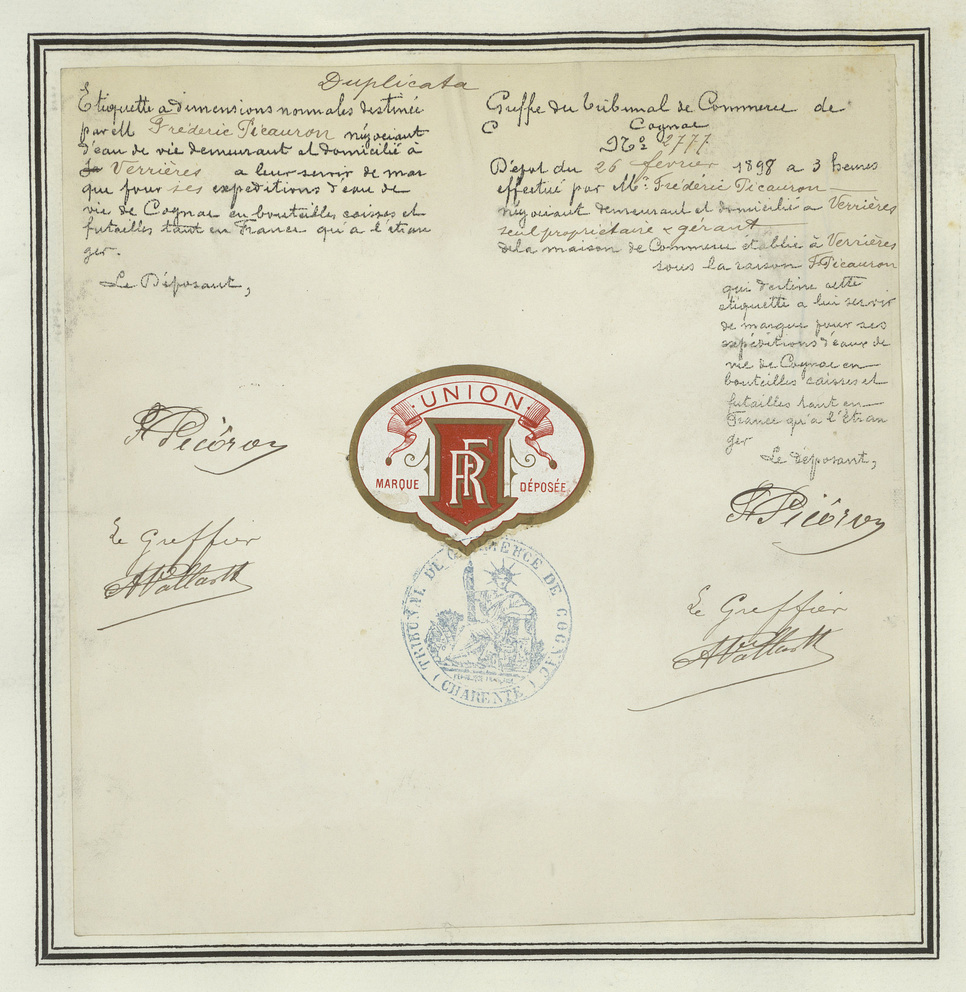 Duplicata
Etiquette a dimensions normales destinée
par M Frédéric Picauron négociant
d'eau de vie demeurant et domicilié à
Verrières a leur servir de mar
que pour ses expéditions d'eau de
vie de Cognac en bouteilles caisses et
futailles tant en France qu'a l'étran
ger.
Le Déposant,
F Picôron
Le Greffier
Greffe du Tribunal de Commerce de
C
Cognac
No 2777
Dépot du 26 février 1898 a 3 heures
effectué par Mr Frédéric Picauron
négociant demeurant et domicilié a Verrières
seul propriétaire & gérant
de la maison de Commerce établie à Verrières
sous la raison F. Picauron
qui destine cette
etiquette a lui servir
de marque pour ses
expéditions d'eaux de
vie de Cognac en
bouteilles caisses et
futailles tant en
France qu'a l'Etran
ger
Le déposant,
F Picôron
Le Greffier
UNION
RF
MARQUE DÉPOSÉE
TRIBUNAL DE COMMERCE DE COGNAC
(CHARENTE)
RÉPUBLIQUE FRANÇAISE